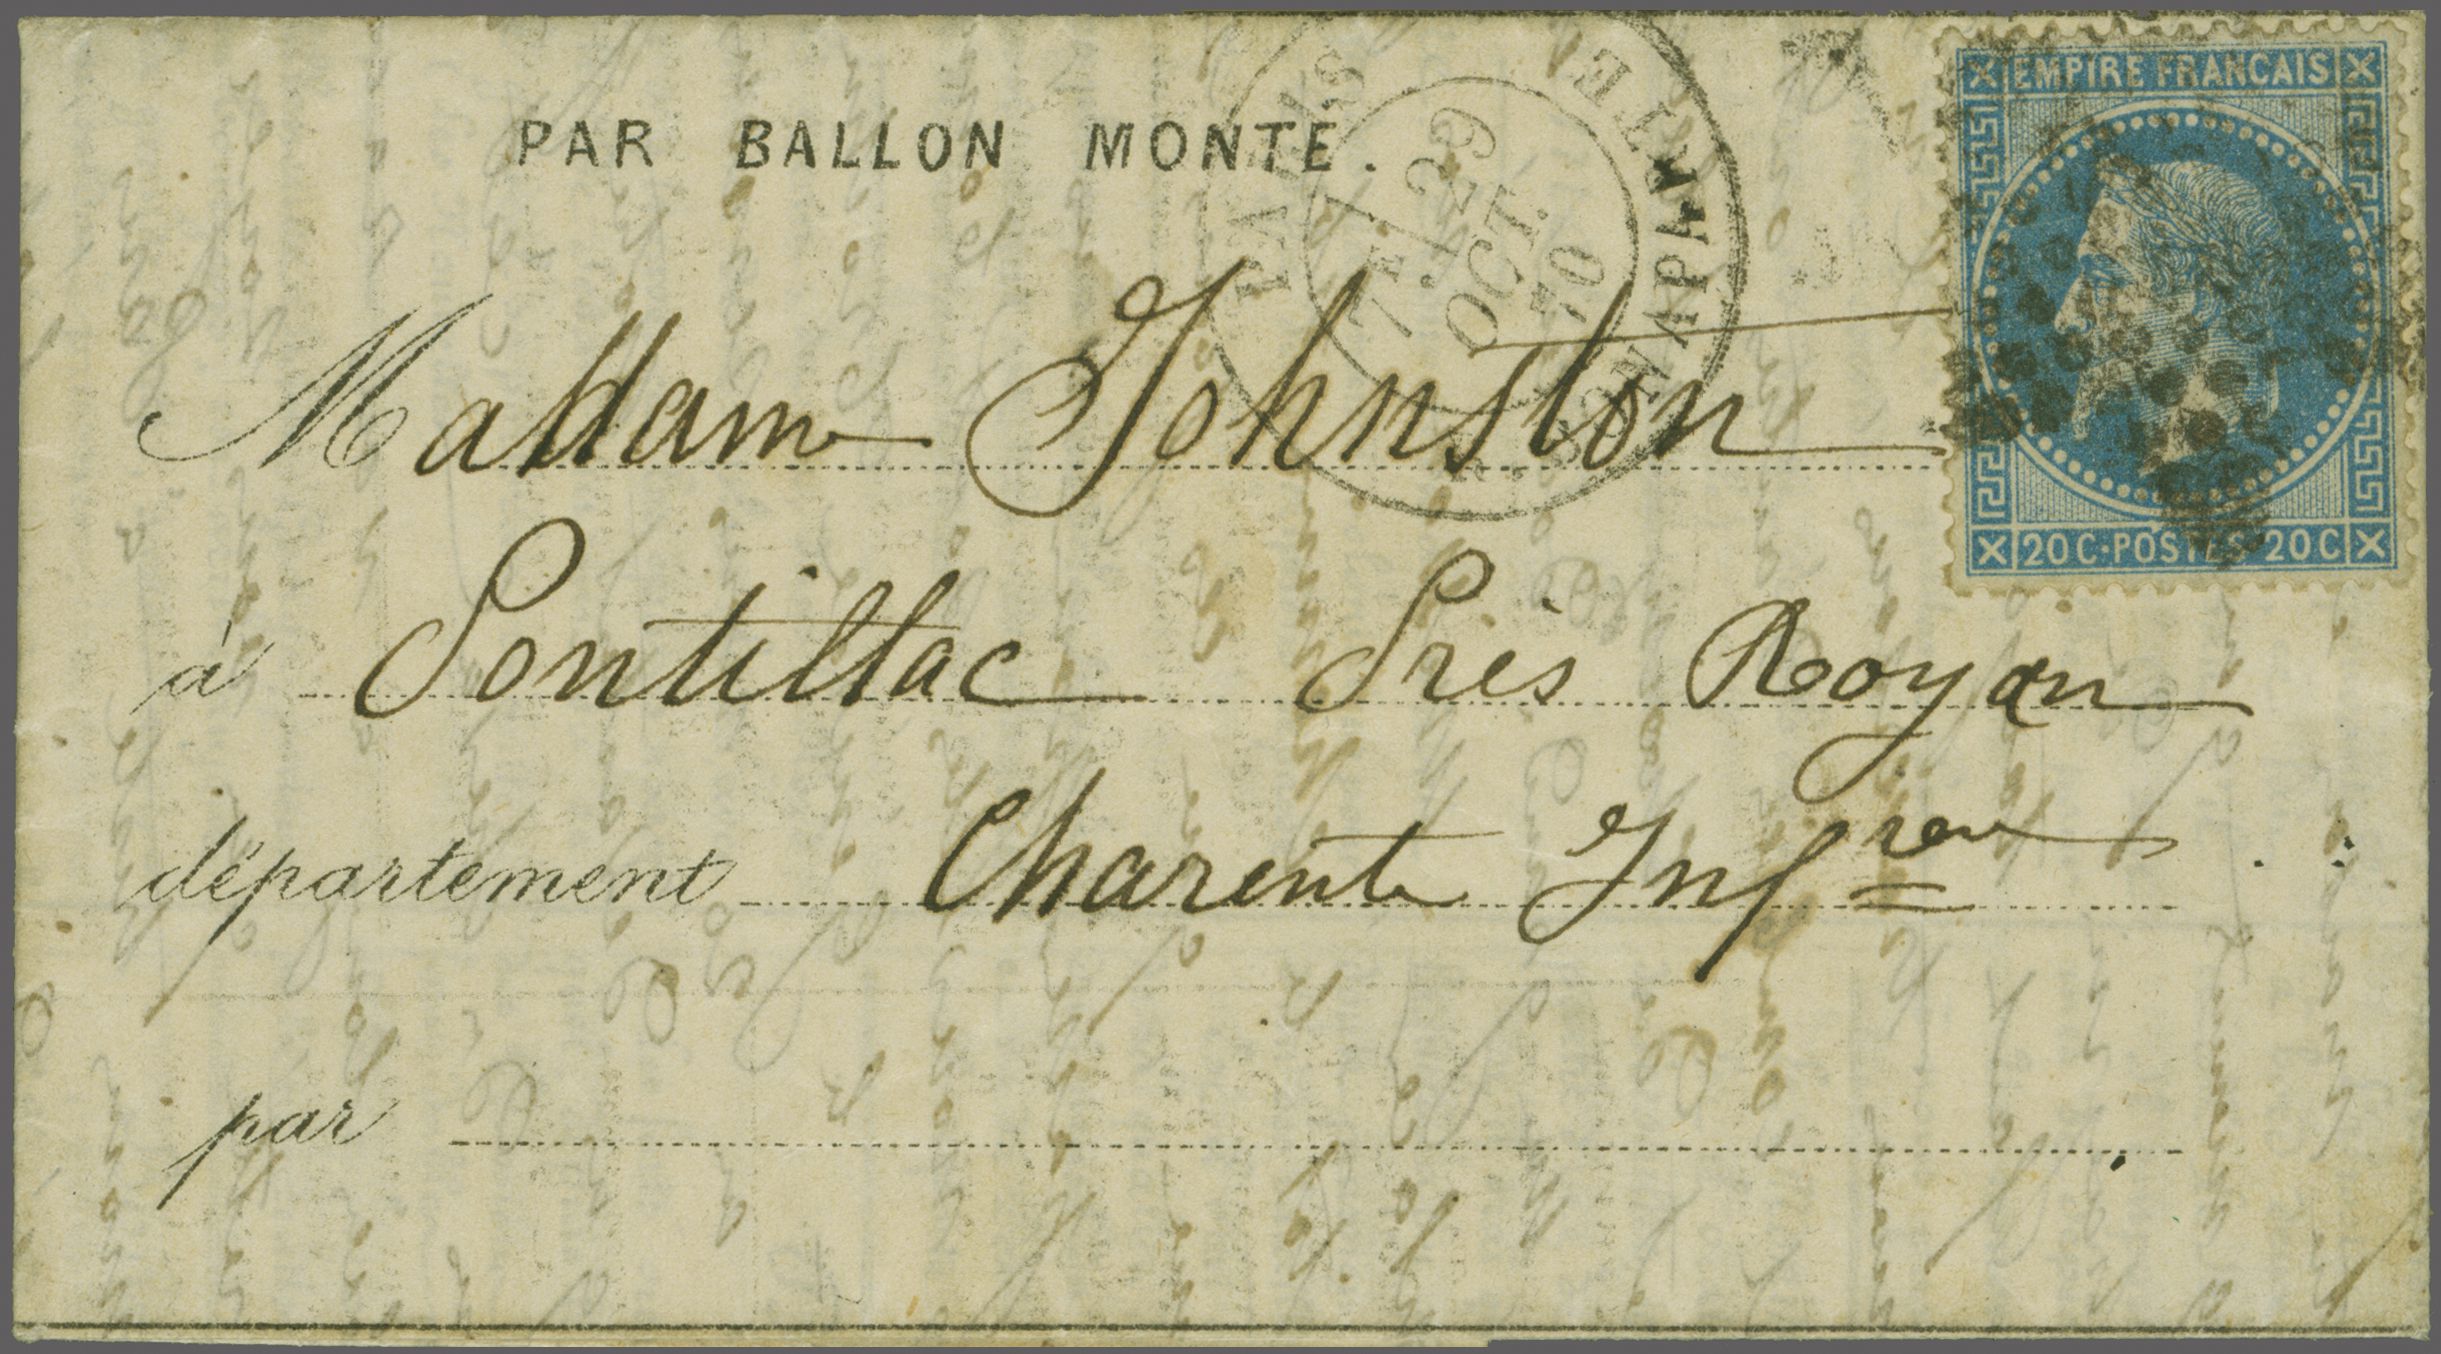 EMPIRE FRANCAIS
PAR BALLON MONTE.
PARIS
7E/ 29
OCT.
70
Madame Johnston
20 C·POSTES·20 C
à Pontillac Près Royan
département Charente Infre
par